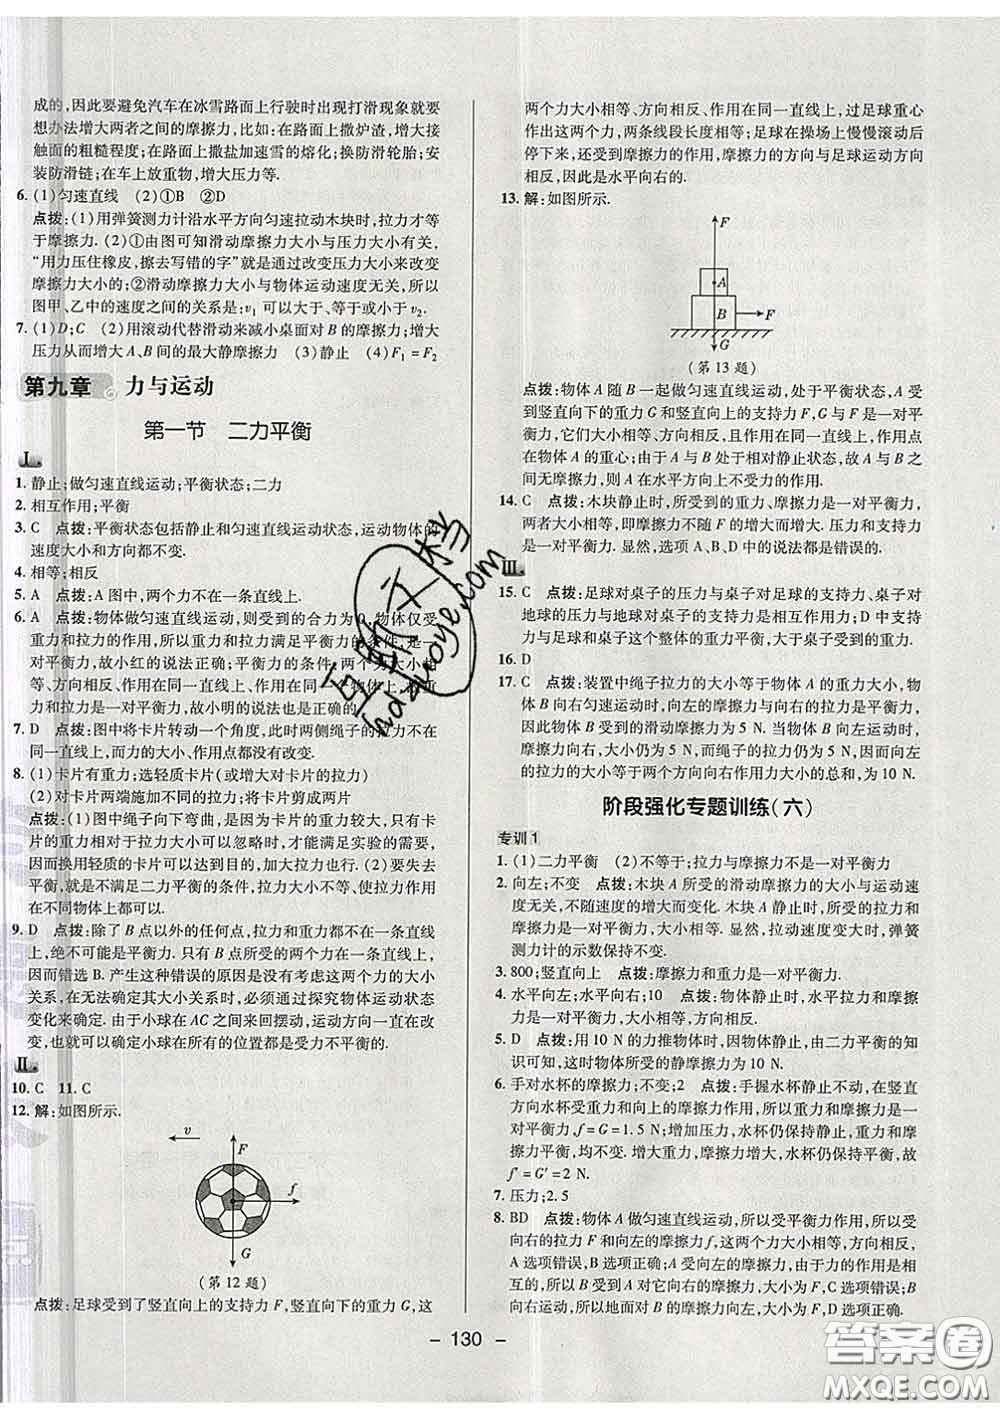 成的,因此要避免汽车在冰雪路面上行驶时出现打滑现象就要
想办法增大两者之间的摩擦力,比如:在路面上撒炉渣,增大接
触面的粗糙程度;在路面上撒盐加速雪的熔化;换防滑轮胎;安
装防滑链;在车上放重物,增大压力等.
6. (1)匀速直线 (2)①B ②D
点拨:(1)用弹簧测力计沿水平方向匀速拉动木块时,拉力才等
于摩擦力.(2)①由图可知滑动摩擦力大小与压力大小有关,
“用力压住橡皮,擦去写错的字”就是通过改变压力大小来改变
摩擦力大小的;②滑动摩擦力大小与物体运动速度无关,所以
图甲、乙中的速度之间的关系是:v1 可以大于、等于或小于 v2.
7. (1)D;C (2)用滚动代替滑动来减小桌面对 B 的摩擦力;增大
压力从而增大 A、B 间的最大静摩擦力 (3)静止 (4)F1 = F2
第九章 力与运动
第一节 二力平衡
Ⅰ.
1. 静止;做匀速直线运动;平衡状态;二力
2. 相互作用;平衡
3. C 点拨:平衡状态包括静止和匀速直线运动状态,运动物体的
速度大小和方向都不变.
4. 相等;相反
5. A 点拨:A 图中,两个力不在一条直线上.
6. A 点拨:物体做匀速直线运动,则受到的合力为 0,物体仅受
重力和拉力作用,所以重力和拉力满足平衡力的条件,是一
对平衡力,故小红的说法正确;平衡力的条件:两个力大小相
等、方向相反、作用在一条直线、作用在同一个物体上,故重
力和拉力是一对平衡力,故小明的说法也是正确的.
7. D 点拨:图中将卡片转动一个角度,此时两侧绳子的拉力不在
同一直线上,而力的大小、作用点都没有改变.
8. (1)卡片有重力;选轻质卡片(或增大对卡片的拉力)
(2)对卡片两端施加不同的拉力;将卡片剪成两片
点拨:(1)图中绳子向下弯曲,是因为卡片的重力较大,只有卡
片的重力相对拉力大小可以忽略时,才能满足实验的需要,
因此换用轻质的卡片可以达到目的,加大拉力也行.(2)要失去
平衡,就是不满足二力平衡的条件,拉力大小不等,使拉力作用
在不同物体上都可以.
9. D 点拨:除了 B 点以外的任何点,拉力和重力都不在一条直线
上,绝不可能是平衡力.只有 B 点所受的两个力在一条直线上,
因而错选 B.产生这种错误的原因是没有考虑这两个力的大小
关系,在无法确定其大小关系时,必须通过探究物体运动状态
变化来确定.由于小球在 AC 之间来回摆动,运动方向一直在改
变,也就可以确定小球在所有的位置都是受力不平衡的.
Ⅱ.
10. C 11. C
12. 解:如图所示.
v
F
f
G
(第 12 题)
点拨:足球受到了竖直向上的支持力 F,竖直向下的重力 G,这
两个力大小相等、方向相反、作用在同一直线上,过足球重心
作出这两个力,两条线段长度相等;足球在操场上慢慢滚动后
停下来,还受到摩擦力的作用,摩擦力的方向与足球运动方向
相反,因此是水平向右的.
13. 解:如图所示.
F
A
B
F
G
(第 13 题)
点拨:物体 A 随 B 一起做匀速直线运动,处于平衡状态,A 受
到竖直向下的重力 G 和竖直向上的支持力 F,F 与 G 是一对平
衡力,它们大小相等、方向相反、且作用在同一直线上,作用点
都在重心;由于 A 与 B 处于相对静止状态,故 A 与 B 之
间无摩擦力,所以 A 在水平方向上不受力的作用.
14. C 点拨:木块静止时,所受到的重力、摩擦力是一对平衡力,
两者大小相等,即摩擦力不随 F 的增大而增大.压力和支持力
是一对平衡力.显然,选项 A、B、D 中的说法都是错误的.
Ⅲ.
15. C 点拨:足球对桌子的压力与桌子对足球的支持力、桌子对
地球的压力与地球对桌子的支持力是相互作用力;D 中支持
力与足球和桌子这个整体的重力平衡,大于桌子受到的重力.
16. D
17. C 点拨:装置中绳子拉力的大小等于物体 A 的重力大小,物
体 B 向右匀速运动时,向左的摩擦力与向右的拉力是平衡力,
因此物体 B 受到的滑动摩擦力为 5 N.当物体 B 向左运动时,
摩擦力向右,大小仍为 5 N,而绳子的拉力仍为 5 N,因而向左
的拉力的大小等于两个方向向右作用力大小的总和,为 10 N.
阶段强化专题训练(六)
专训 1
1. (1)二力平衡 (2)不等于;拉力与摩擦力不是一对平衡力
2. 向左;不变 点拨:木块 A 所受的滑动摩擦力的大小与运动速
度无关,不随速度的增大而变化.木块 A 静止时,所受的拉力和
摩擦力是一对平衡力,大小相等.显然,拉动速度变大时,弹簧
测力计的示数保持不变.
3. 800;竖直向上 点拨:摩擦力和重力是一对平衡力.
4. 水平向左;水平向右;10 点拨:物体静止时,水平拉力和摩擦
力是一对平衡力,大小相等,方向相反.
5. D 点拨:用 10 N 的力推物体时,物体静止,由二力平衡的知
识可知,这时物体所受的静摩擦力为 10 N.
6. 手对水杯的摩擦力;不变;2 点拨:手握水杯静止不动,在竖直
方向水杯受重力和向上的摩擦力作用,所以重力和摩擦力是一
对平衡力,f = G = 1.5 N;增加压力,水杯仍保持静止,重力和摩
擦力平衡,均不变;水杯中加水,重力增大,水杯仍静止,所以
f′ = G′ = 2 N.
7. 压力;2.5
8. BD 点拨:物体 A 做匀速直线运动,所以受平衡力作用,所以受
向右的拉力 F 和向左的摩擦力 f,而且这两个力大小相等,所以
A 选项错误,B 选项正确;A 受向左的摩擦力,由于力的作用是相
互的,所以 B 受到 A 对它向右的摩擦力,大小为 F,C 选项错误;B 有
向右运动,所以地面对 B 的摩擦力向左,大小为 F,D 选项正确.
– 130 –
互助文档
hdzuoye.com
答案圈
MXQE.COM